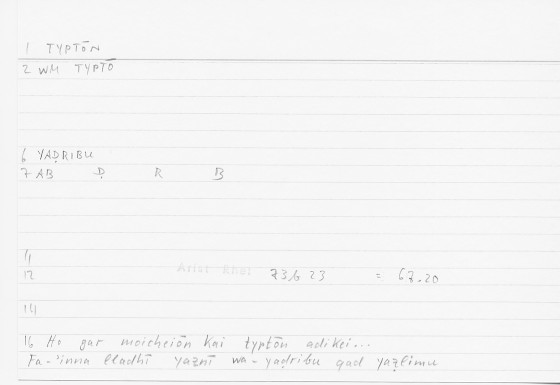 1 TYPTŌN
2 WM TYPTŌ
6 YAḌRIBU
7 AB Ḍ R B
11
12 Arist Rhet 73,6 23 = 67.20
14
16 Ho gar moicheiōn kai typtōn adikei...
Fa-'inna lladhī yaznī wa-yaḍribu qad yaẓlimu